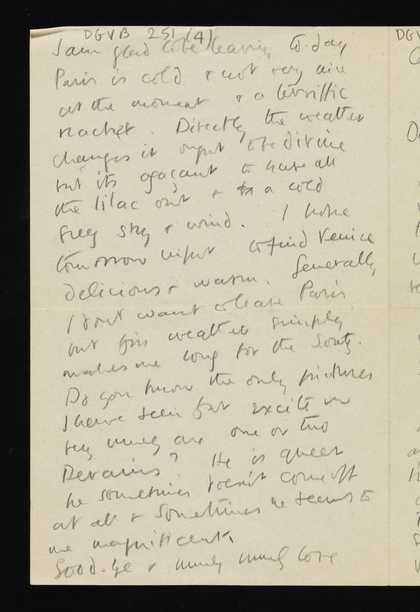 DGVB 251 (4)
I am glad to be leaving to-day
Paris is cold & not very nice
at the moment & a terrific
racket. Directly the weather
changes it ought to be divine
but its agaçant to have all
the lilac out & a cold
grey sky & wind. I hope
tomorrow night to find Venice
delicious & warm. Generally
I dont want to leave Paris
but this weather simply
makes me long for the South.
Do you know the only pictures
I have seen that excite me
very much are one or two
Derains? He is queer
he sometimes doesn't come off
at all & sometimes he seems to
me magnificent.
Good-bye & much much love